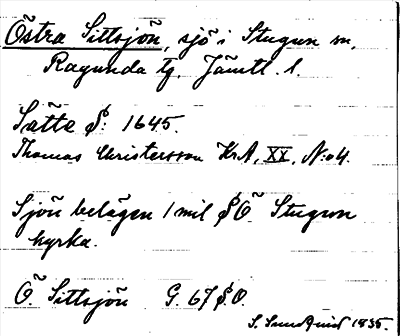 Östra Sittsjön, sjö i Stugun sn,
Ragunda tg. Jämtl. l.
Sätte S: 1645.
Thomas Christersson KrA, XX, N:o 4.
Sjön belägen 1 mil SÖ Stugun
kyrka.
Ö. Sittsjön G. 67 S.O.
S. Sundquist 1935.